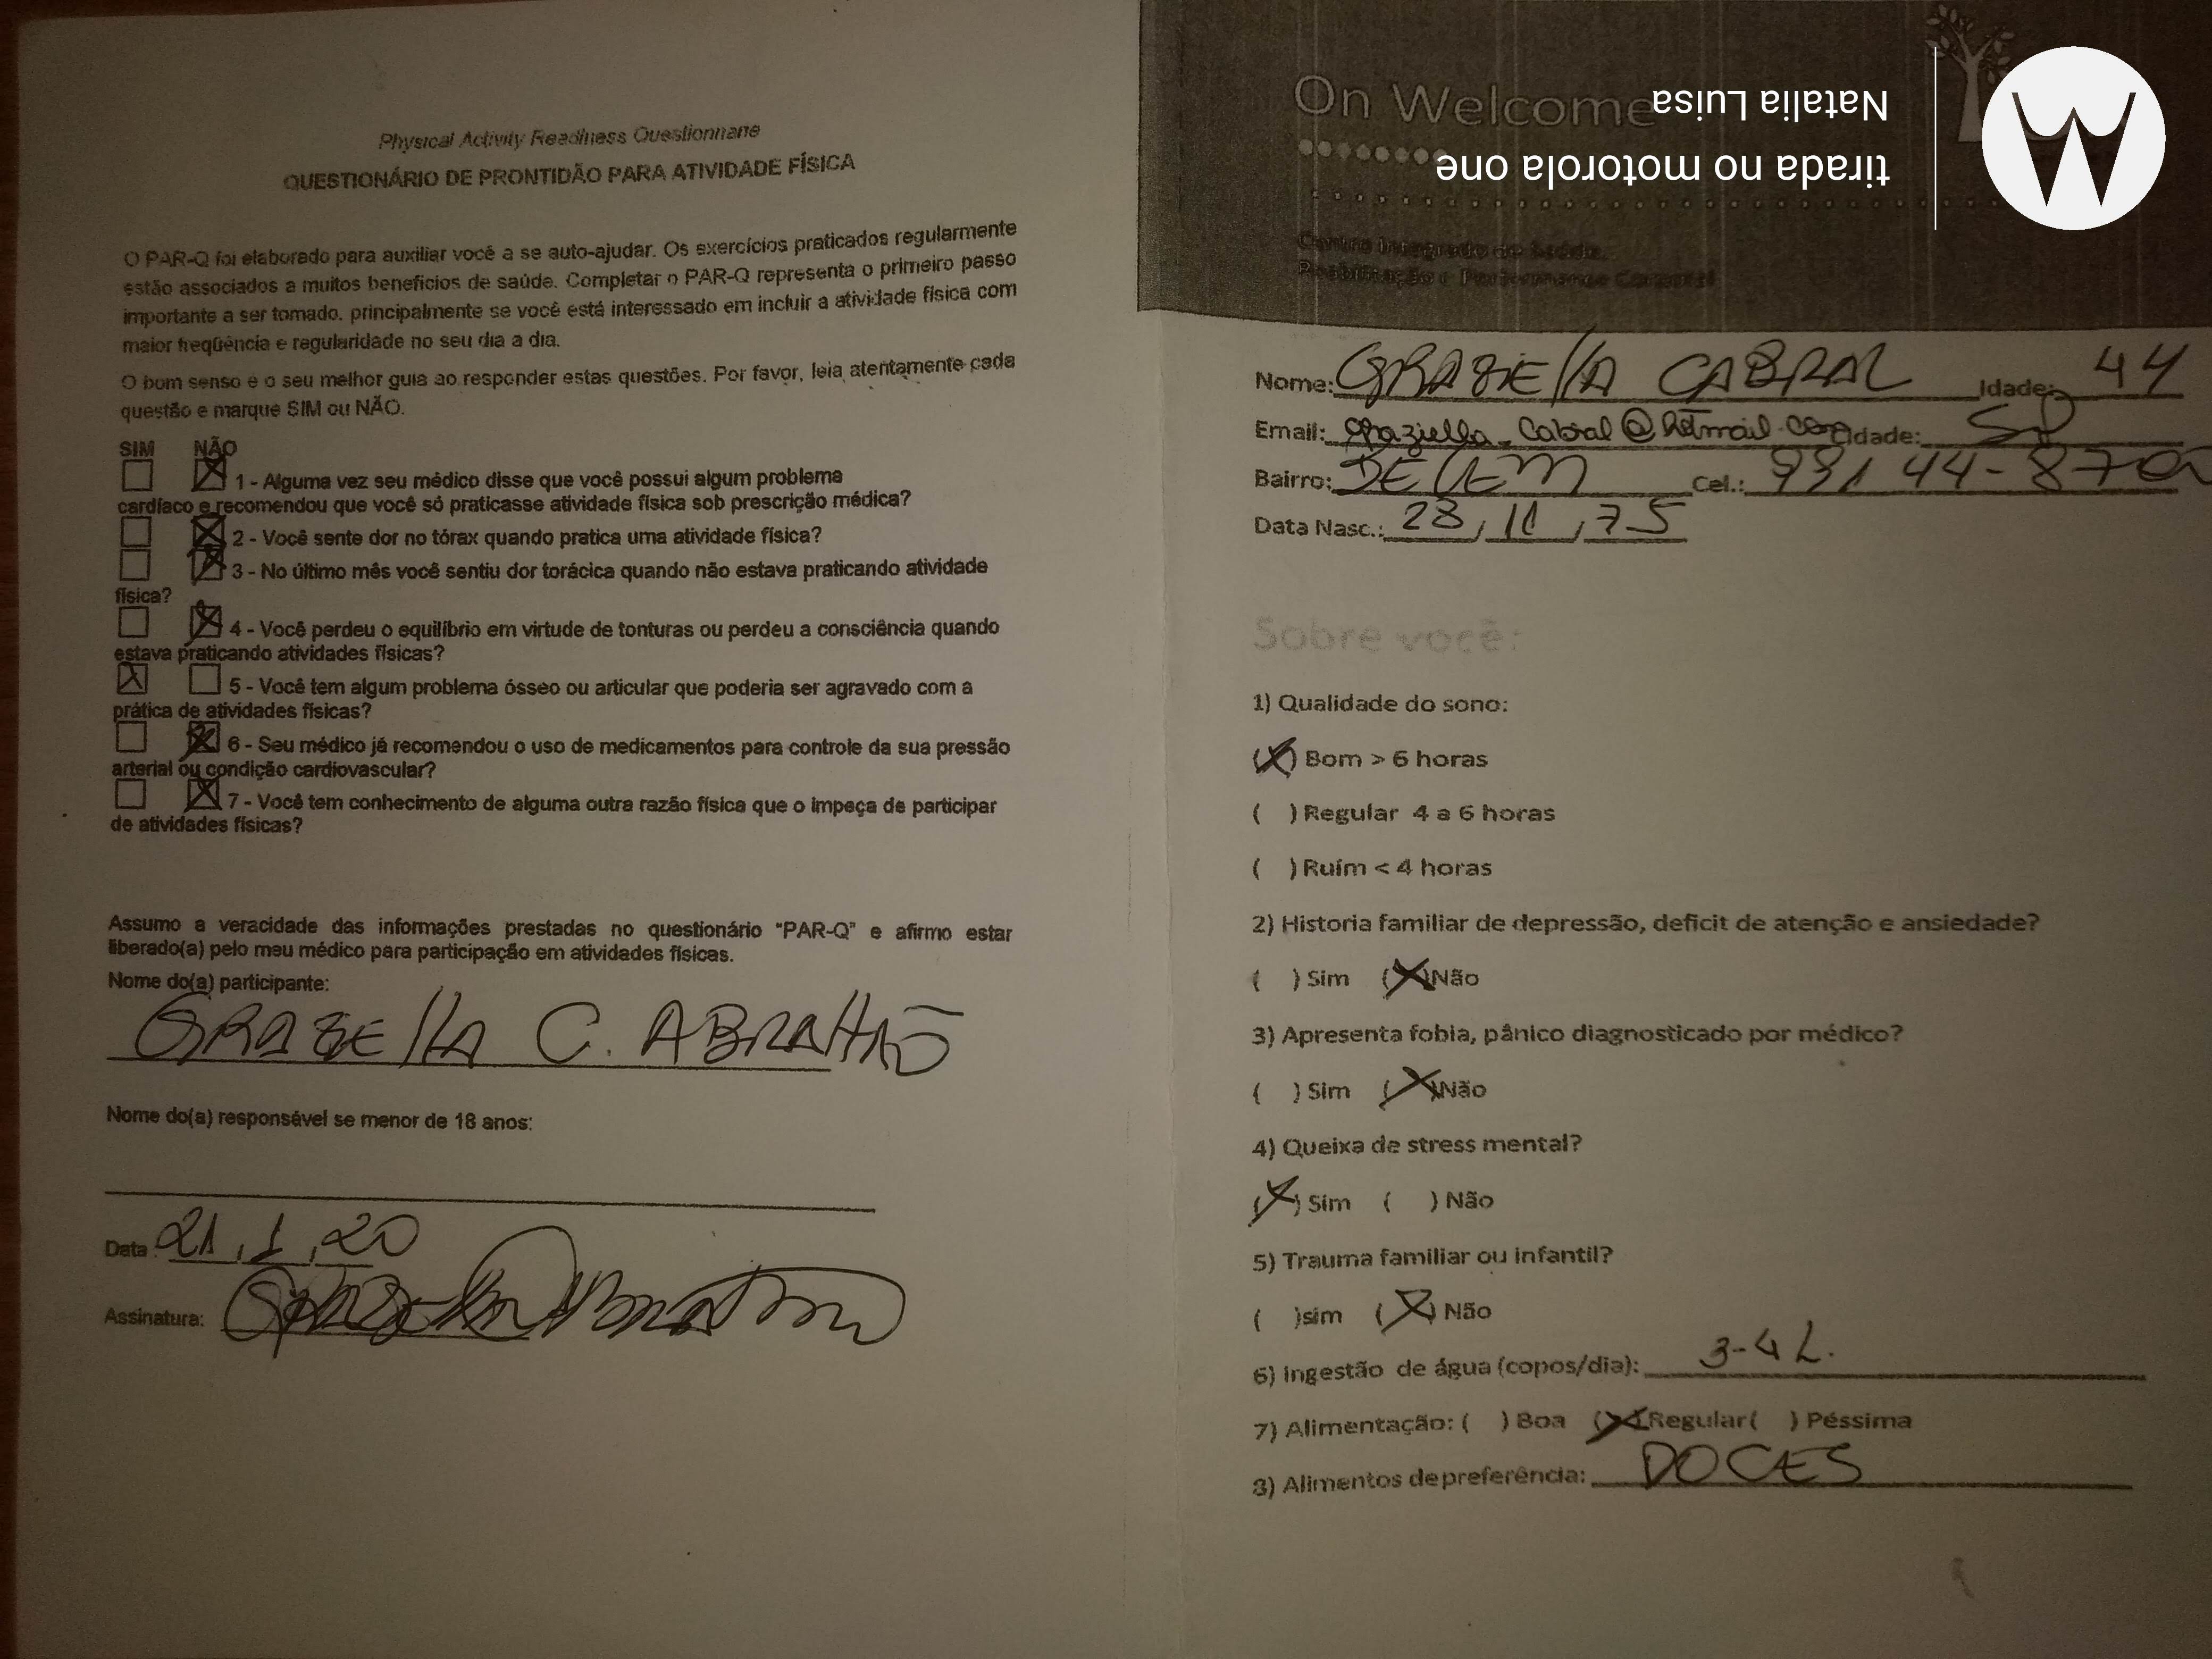 Physical Activity Readiness Questionnaire
QUESTIONÁRIO DE PRONTIDÃO PARA ATIVIDADE FÍSICA
O PAR-Q foi elaborado para auxiliar você a se auto-ajudar. Os exercícios praticados regularmente
estão associados a muitos benefícios de saúde. Completar o PAR-Q representa o primeiro passo
importante a ser tomado, principalmente se você está interessado em incluir a atividade física com
maior freqüência e regularidade no seu dia a dia.
O bom senso e o seu melhor guia ao responder estas questões. Por favor, leia atentamente cada
questão e marque SIM ou NÃO.
SIM NÃO
1 - Alguma vez seu médico disse que você possui algum problema
cardíaco e recomendou que você só praticasse atividade física sob prescrição médica?
2 - Você sente dor no tórax quando pratica uma atividade física?
3 - No último mês você sentiu dor torácica quando não estava praticando atividade
física?
4 - Você perdeu o equilíbrio em virtude de tonturas ou perdeu a consciência quando
estava praticando atividades físicas?
5 - Você tem algum problema ósseo ou articular que poderia ser agravado com a
prática de atividades físicas?
6 - Seu médico já recomendou o uso de medicamentos para controle da sua pressão
arterial ou condição cardiovascular?
7 - Você tem conhecimento de alguma outra razão física que o impeça de participar
de atividades físicas?
Assumo a veracidade das informações prestadas no questionário "PAR-Q" e afirmo estar
liberado(a) pelo meu médico para participação em atividades físicas.
Nome do(a) participante:
GRAZIELLA C. ABRAHÃO
Nome do(a) responsável se menor de 18 anos:
Data 21, 1, 20
Assinatura:
On Welcome
Centro Integrado de Saúde,
Reabilitação e Performance Corporal
Nome: GRAZIELLA CABRAL Idade: 44
Email: graziella_cabral@hotmail.com Cidade: SP
Bairro: BELÉM Cel.:
Data Nasc.: 23, 11, 75
Sobre você:
1) Qualidade do sono:
(X) Bom > 6 horas
( ) Regular 4 a 6 horas
( ) Ruim < 4 horas
2) Historia familiar de depressão, deficit de atenção e ansiedade?
( ) Sim (X) Não
3) Apresenta fobia, pânico diagnosticado por médico?
( ) Sim (X) Não
4) Queixa de stress mental?
(X) Sim ( ) Não
5) Trauma familiar ou infantil?
( )sim (X) Não
6) Ingestão de água (copos/dia): 3-4 L.
7) Alimentação: ( ) Boa (X) Regular ( ) Péssima
8) Alimentos de preferência: DOCES
tirada no motorola one
Natalia Luisa